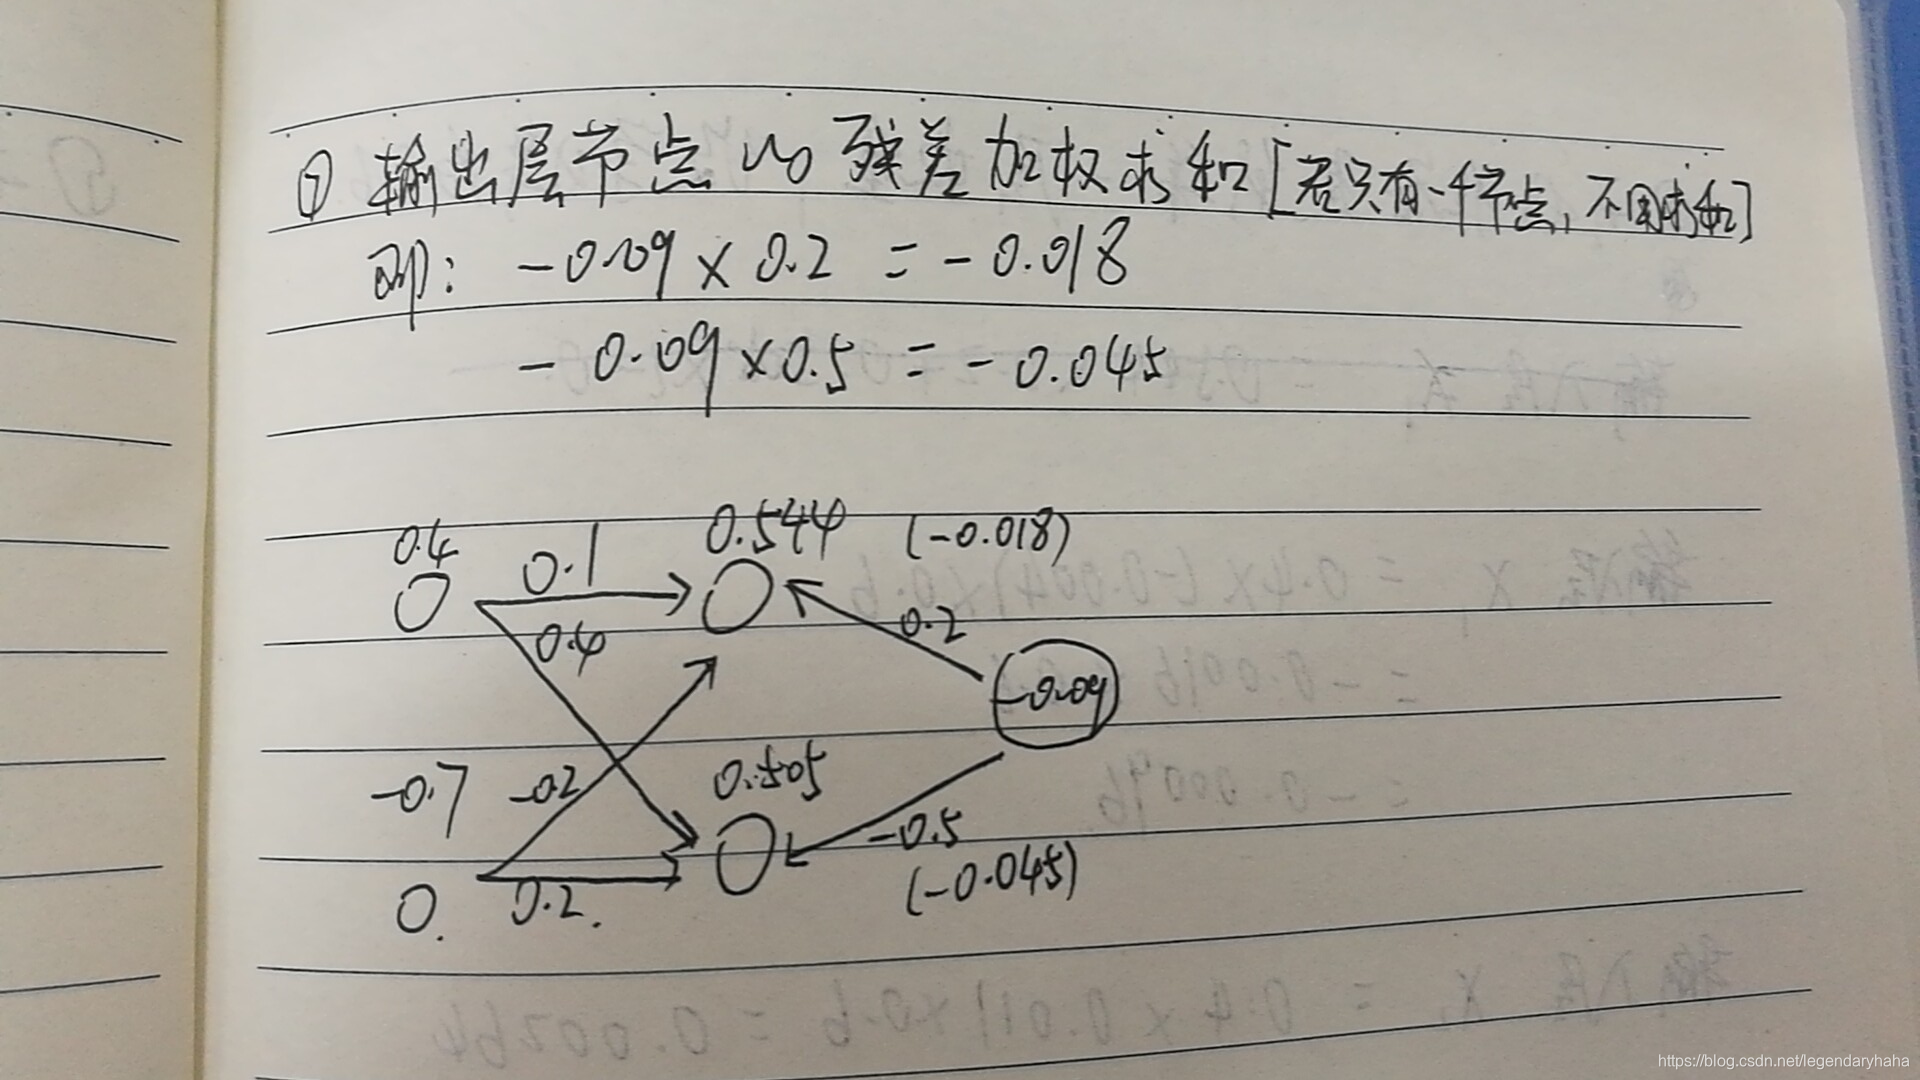 ⑦ 输出层节点的残差加权求和[若只有一个节点,不用求和]
即: -0.09 × 0.2 = -0.018
-0.09 × 0.5 = -0.045
0.4 0.1 0.544 (-0.018)
0.4 0.2
-0.09
-0.7 -0.2 0.505
-0.5
0.2. (-0.045)
https://blog.csdn.net/legendaryhaha